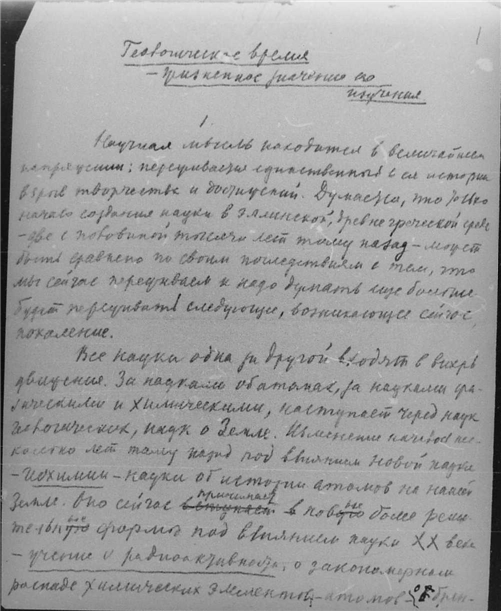 1
Геологическое время
– жизненное значение его
изучения
1
Научная мысль находится в величайшем
напряжении: переживается единственный в ея истории
взрыв творчества и достижений. Думается, что только
начало создания науки в эллинской, древнегреческой среде
– две с половиной тысячи лет тому назад – может
быть сравнено по своим последствиям с тем, что
мы сейчас переживаем и надо думать еще больше
будет переживать следующее, возникающее сейчас,
поколение.
Все науки одна за другой входят в вихрь
движения. За науками об атомах, за науками фи-
зическими и химическими, наступает черед наук
геологических, наук о Земле. Изменение началось не-
сколько лет тому назад под влиянием новой науки
– геохимии – науки об истории атомов на нашей
Земле. Оно сейчас вступает принимает в новую более реши-
тельную форму под влиянием науки XX века
– учение о радиоактивности, о закономерном
распаде химических элементов – атомов –